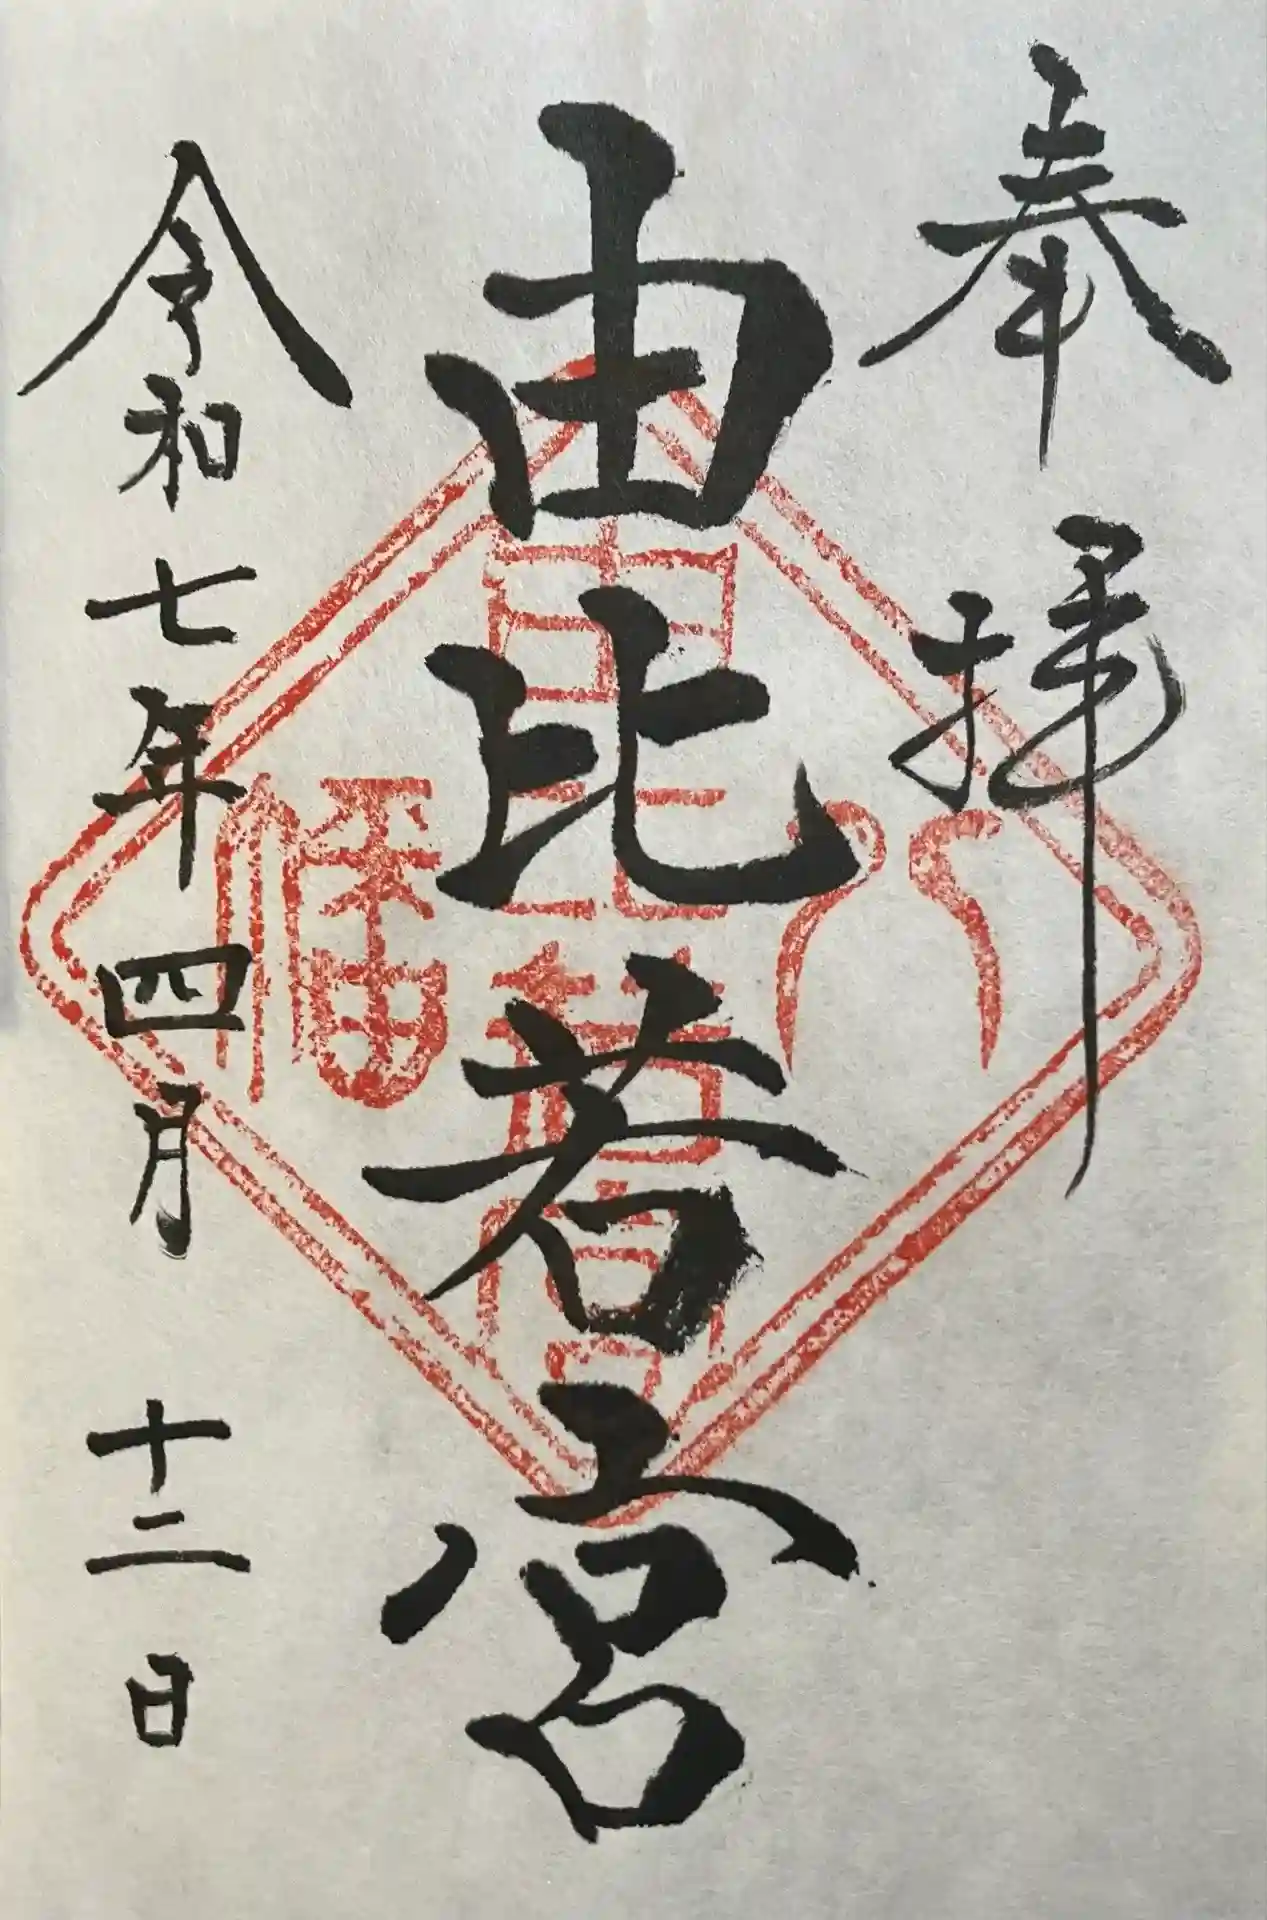 奉拝
由比若宮
八幡
由比若宮
令和七年四月十二日